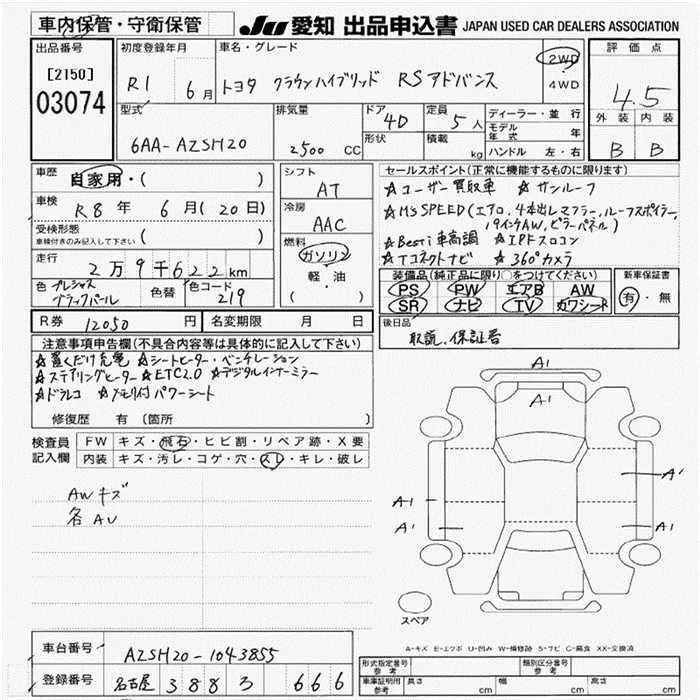 車内保管・守衛保管
JU 愛知 出品申込書 JAPAN USED CAR DEALERS ASSOCIATION
出品番号
[2150]
03074
初度登録年月
R1 6月
車名・グレード
トヨタ クラウンハイブリッド RSアドバンス
2WD
4WD
評価点
4.5
外装 内装
B B
型式
6AA-AZSH20
排気量
2500 CC
ドア
4D
形状
定員
5人
積載
kg
ディーラー・並行
モデル年式 年
ハンドル 左・右
車歴
自家用・( )
車検
R8年 6月(20日)
受検形態
車検付きのみ記入して下さい ( )
走行
2万9千622km
色 プレシャスブラックパール
色替
色コード
219
シフト
AT
冷房
AAC
燃料
ガソリン
軽・油
( )
セールスポイント(正常に機能するものに限ります)
☆ユーザー買取車 ☆サンルーフ
☆M'S SPEED(エアロ,4本出しマフラー,ルーフスポイラー,
19インチAW,ピラーパネル)
☆Besti車高調 ☆IPFスロコン
☆Tコネクトナビ ☆360°カメラ
装備品(純正品に限り○をつけてください)
PS PW エアB AW
SR ナビ TV カワシート
新車保証書
有・無
R券 12050 円
名変期限 月 日
後日品
取説,保証書
注意事項申告欄(不具合内容等は具体的に記入して下さい)
☆置くだけ充電 ☆シートヒーター・ベンチレーション
☆ステアリングヒーター ☆ETC2.0 ☆デジタルインナーミラー
☆ドラレコ ☆メモリ付パワーシート
修復歴 有(箇所 )
検査員記入欄
FW キズ・飛石・ヒビ割・リペア跡・X要
内装 キズ・汚レ・コゲ・穴・スレ・キレ・破レ
AWキズ
各AU
A1
A1
A1
A'
A'
A1
スペア
A-キズ E-エクボ U-凹み W-補修跡 S-サビ C-腐食 XX-交換済
車台番号
AZSH20-1043855
登録番号
名古屋 388 ろ 666
形式指定番号 参考
類別区分番号 参考
車庫証明用 参考
長さ cm
幅 cm
高さ cm